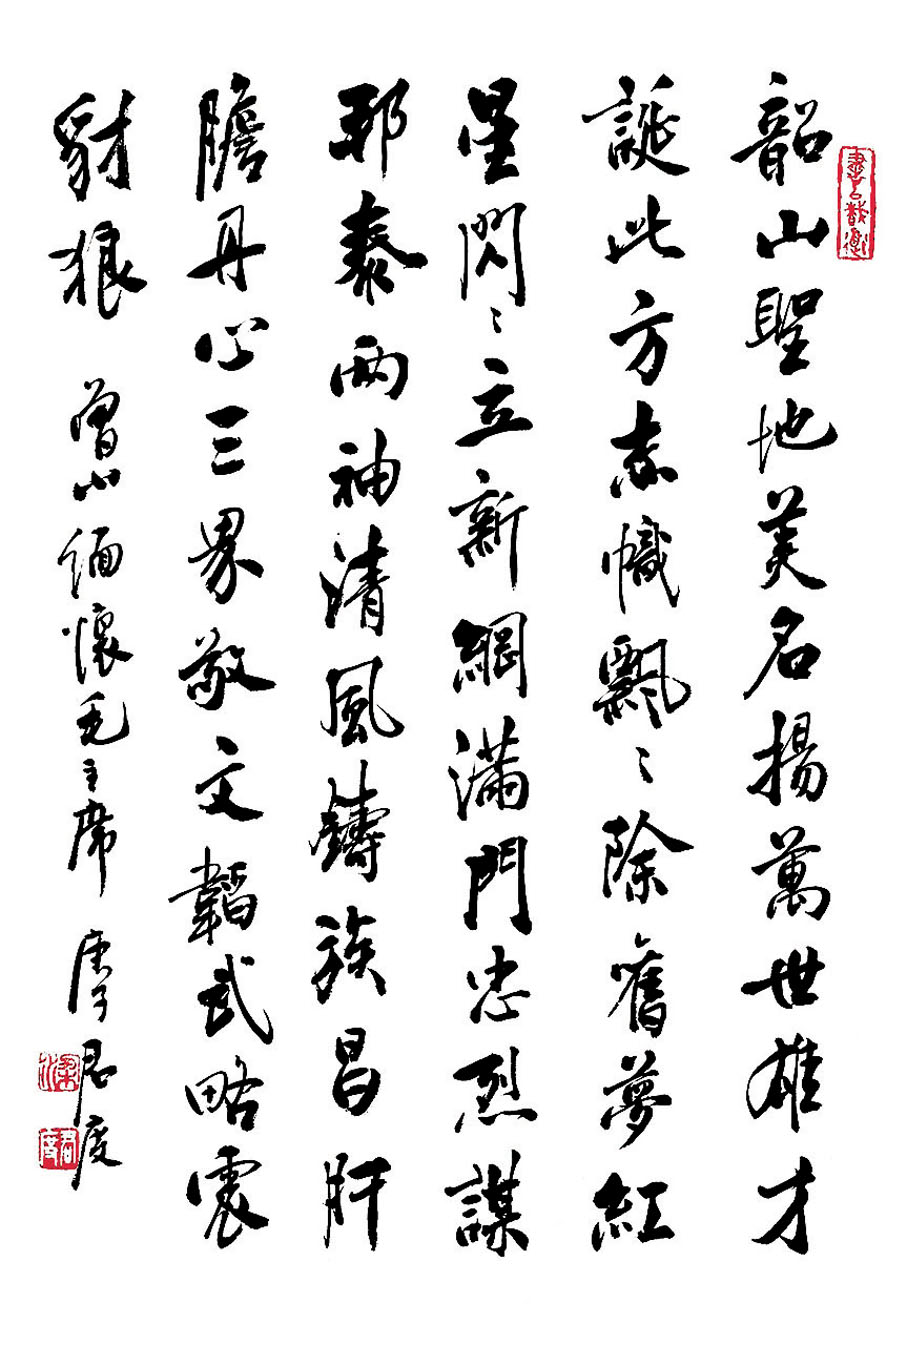 韶山聖地美名揚萬世雄才
誕此方赤幟飄〻除舊夢紅
星閃〻立新綱滿門忠烈謀
邦泰两袖清風鑄族昌肝
膽丹心三界敬文韜武略震
豺狼 曾山緬懷毛主席 君度
君度